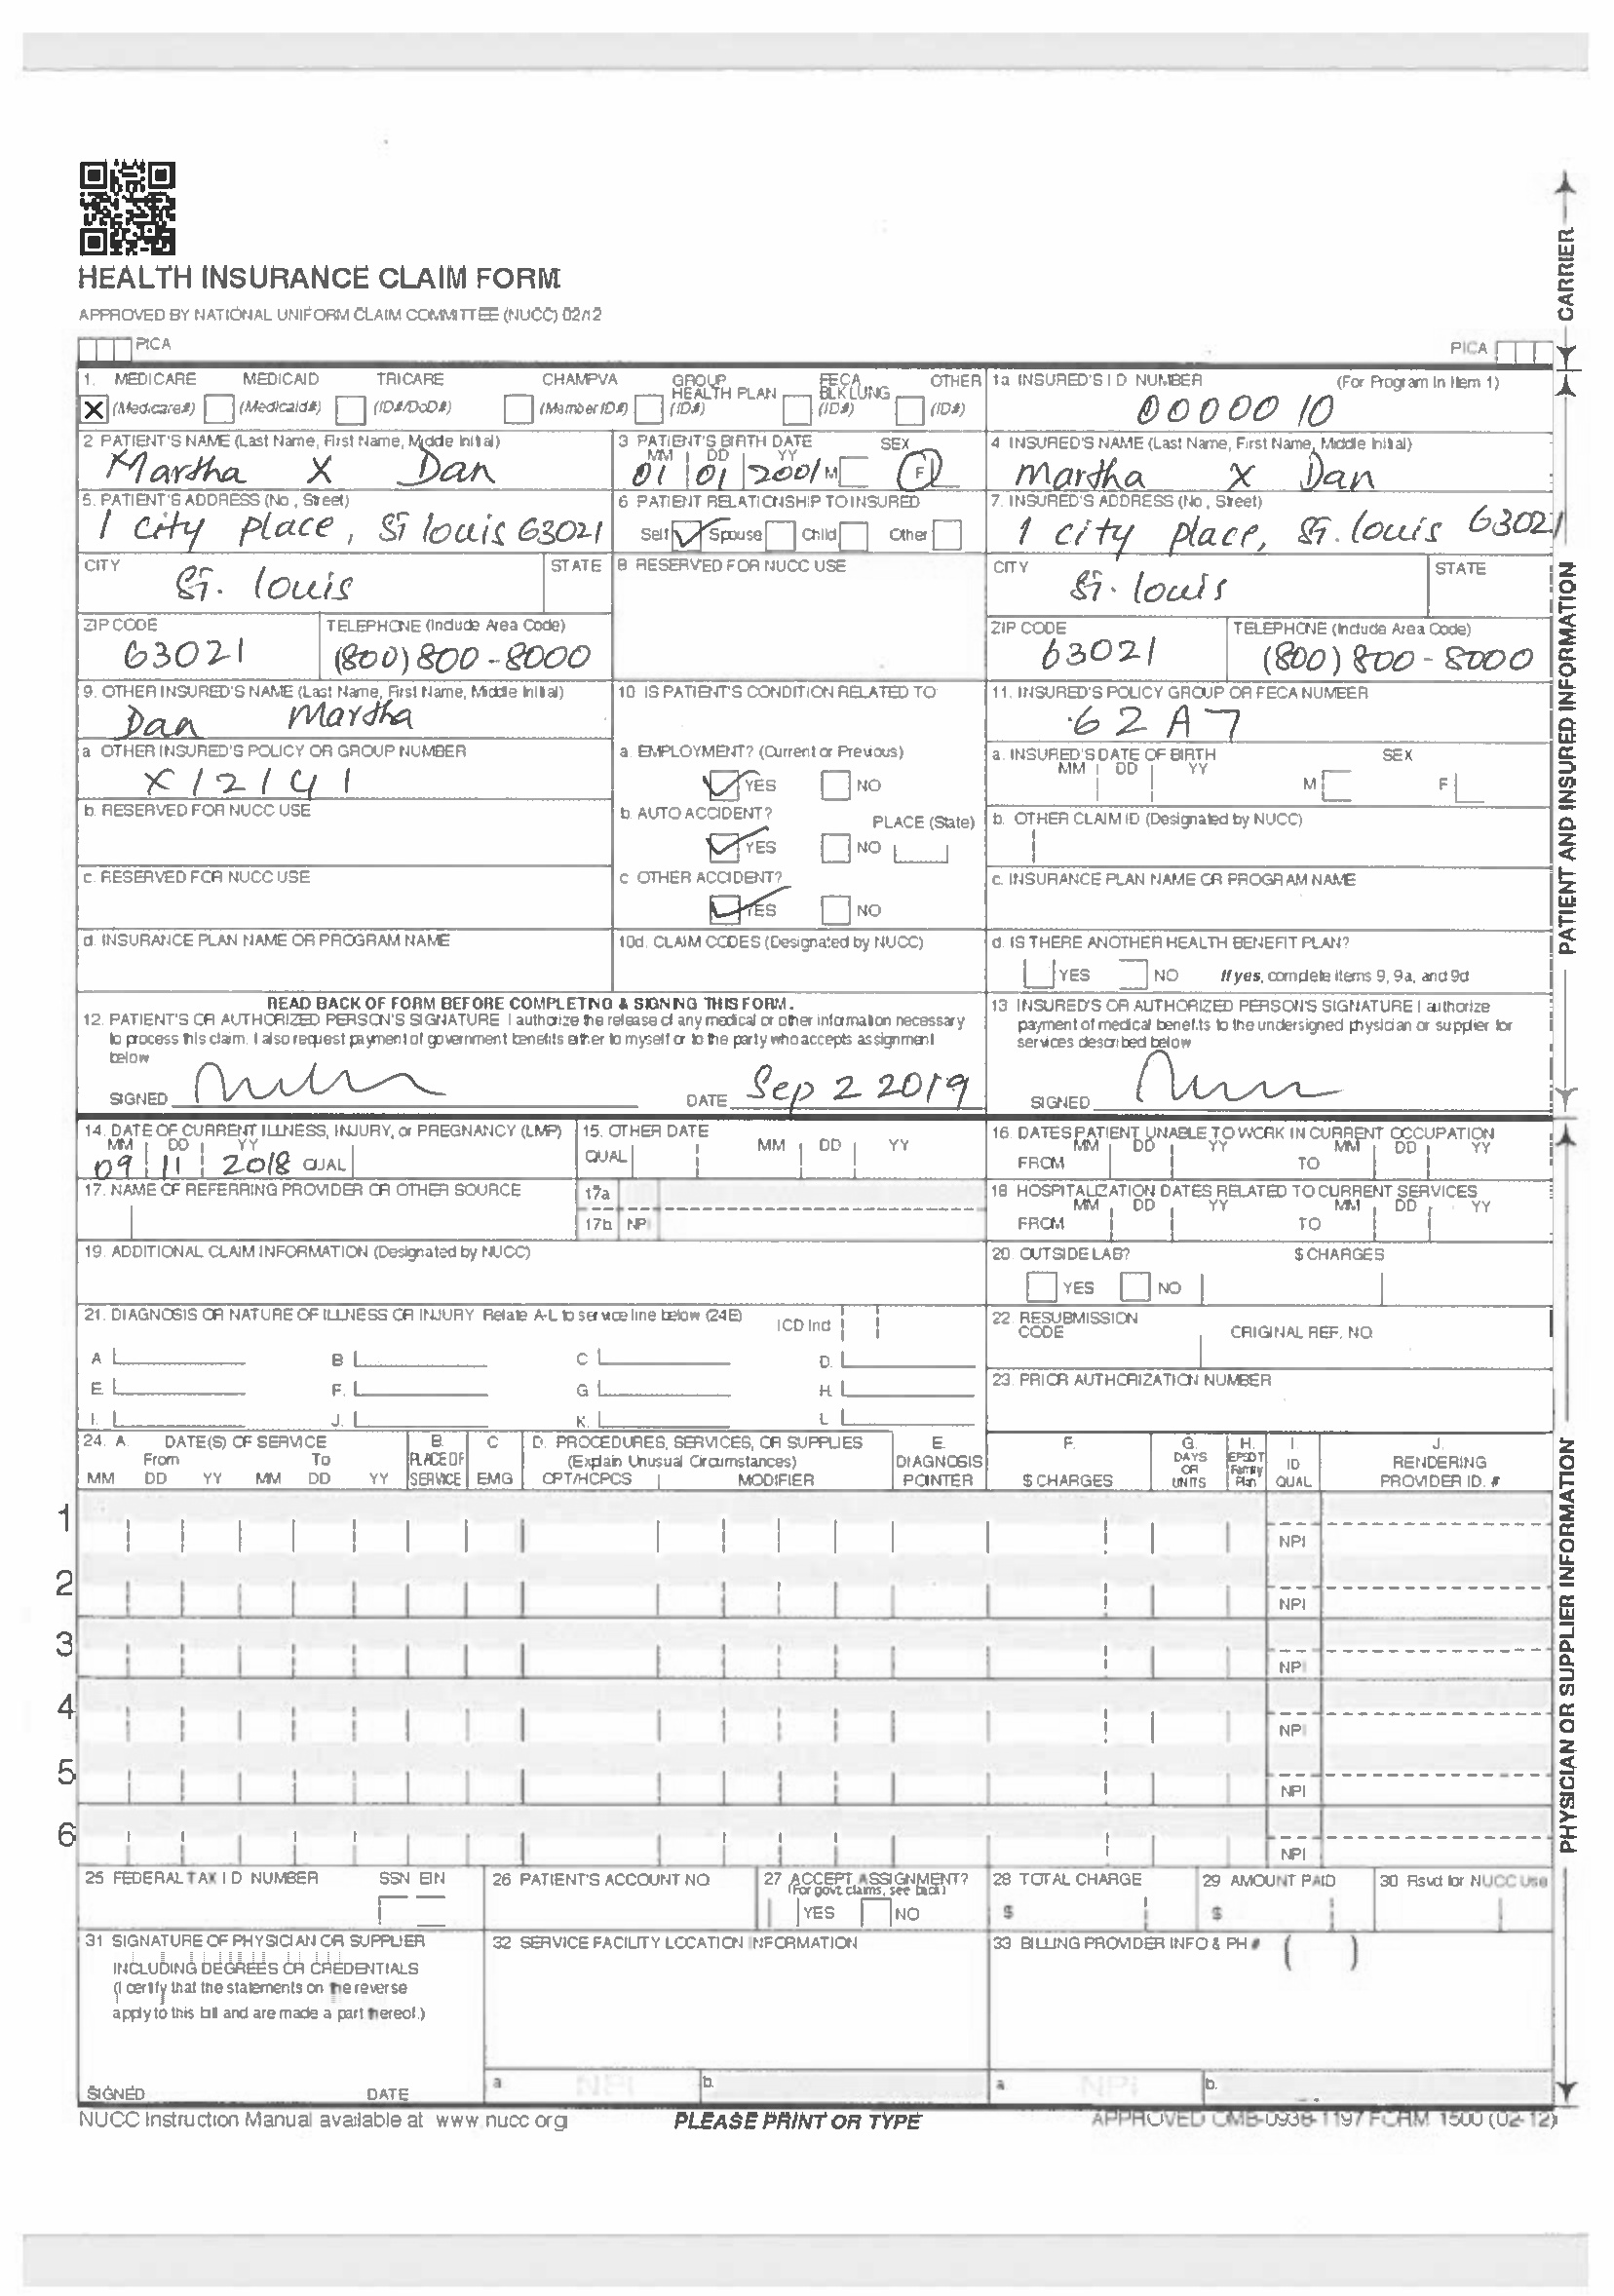 HEALTH INSURANCE CLAIM FORM
APPROVED BY NATIONAL UNIFORM CLAIM COMMITTEE (NUCC) 02/12
PICA PICA
CARRIER
1. MEDICARE MEDICAID TRICARE CHAMPVA GROUP HEALTH PLAN FECA BLK LUNG OTHER
X (Medicare#) (Medicaid#) (ID#/DoD#) (Member ID#) (ID#) (ID#) (ID#)
1a INSURED'S I D NUMBER (For Program In Item 1)
0000010
2 PATIENT'S NAME (Last Name, First Name, Middle Initial)
Martha X Dan
3 PATIENT'S BIRTH DATE SEX
MM DD YY
01 01 2001 M F
4 INSURED'S NAME (Last Name, First Name, Middle Initial)
Martha X Dan
5. PATIENT'S ADDRESS (No, Street)
1 city place, St louis 63021
6 PATIENT RELATIONSHIP TO INSURED
Self Spouse Child Other
7. INSURED'S ADDRESS (No, Street)
1 city place, St. louis 63021
CITY STATE
St. louis
8 RESERVED FOR NUCC USE
CITY STATE
St. louis
ZIP CODE TELEPHONE (Include Area Code)
63021 (800) 800-8000
ZIP CODE TELEPHONE (Include Area Code)
63021 (800) 800-8000
9. OTHER INSURED'S NAME (Last Name, First Name, Middle Initial)
Dan Martha
10 IS PATIENT'S CONDITION RELATED TO
11. INSURED'S POLICY GROUP OR FECA NUMBER
62A7
a OTHER INSURED'S POLICY OR GROUP NUMBER
X12141
a. EMPLOYMENT? (Current or Previous)
YES NO
a. INSURED'S DATE OF BIRTH SEX
MM DD YY
M F
b. RESERVED FOR NUCC USE
b. AUTO ACCIDENT? PLACE (State)
YES NO
b. OTHER CLAIM ID (Designated by NUCC)
c. RESERVED FOR NUCC USE
c OTHER ACCIDENT?
YES NO
c. INSURANCE PLAN NAME OR PROGRAM NAME
d. INSURANCE PLAN NAME OR PROGRAM NAME
10d. CLAIM CODES (Designated by NUCC)
d. IS THERE ANOTHER HEALTH BENEFIT PLAN?
YES NO If yes, complete items 9, 9a, and 9d
PATIENT AND INSURED INFORMATION
READ BACK OF FORM BEFORE COMPLETING & SIGNING THIS FORM.
12. PATIENT'S OR AUTHORIZED PERSON'S SIGNATURE I authorize the release of any medical or other information necessary
to process this claim. I also request payment of government benefits either to myself or to the party who accepts assignment
below
SIGNED DATE Sep 2 2019
13 INSURED'S OR AUTHORIZED PERSON'S SIGNATURE I authorize
payment of medical benefits to the undersigned physician or supplier for
services described below
SIGNED
14. DATE OF CURRENT ILLNESS, INJURY, or PREGNANCY (LMP)
MM DD YY
09 11 2018 QUAL
15. OTHER DATE
QUAL MM DD YY
16. DATES PATIENT UNABLE TO WORK IN CURRENT OCCUPATION
MM DD YY MM DD YY
FROM TO
17. NAME OF REFERRING PROVIDER OR OTHER SOURCE
17a
17b NPI
18 HOSPITALIZATION DATES RELATED TO CURRENT SERVICES
MM DD YY MM DD YY
FROM TO
19. ADDITIONAL CLAIM INFORMATION (Designated by NUCC)
20 OUTSIDE LAB? $ CHARGES
YES NO
21. DIAGNOSIS OR NATURE OF ILLNESS OR INJURY Relate A-L to service line below (24E) ICD Ind
A B C D.
E. F. G H.
I. J. K. L
22. RESUBMISSION
CODE ORIGINAL REF. NO
23. PRIOR AUTHORIZATION NUMBER
24. A. DATE(S) OF SERVICE B. C D. PROCEDURES, SERVICES, OR SUPPLIES E. F. G. H. I. J.
From To PLACE OF (Explain Unusual Circumstances) DIAGNOSIS DAYS OR EPSDT Family ID RENDERING
MM DD YY MM DD YY SERVICE EMG CPT/HCPCS MODIFIER POINTER $ CHARGES UNITS Plan QUAL PROVIDER ID. #
1 NPI
2 NPI
3 NPI
4 NPI
5 NPI
6 NPI
PHYSICIAN OR SUPPLIER INFORMATION
25 FEDERAL TAX I D NUMBER SSN EIN
26 PATIENT'S ACCOUNT NO
27 ACCEPT ASSIGNMENT?
(For govt. claims, see back)
YES NO
28 TOTAL CHARGE
$
29 AMOUNT PAID
$
30 Rsvd for NUCC Use
31 SIGNATURE OF PHYSICIAN OR SUPPLIER
INCLUDING DEGREES OR CREDENTIALS
(I certify that the statements on the reverse
apply to this bill and are made a part thereof.)
SIGNED DATE
32 SERVICE FACILITY LOCATION INFORMATION
a NPI b.
33 BILLING PROVIDER INFO & PH # ( )
a NPI b.
NUCC Instruction Manual available at www.nucc org
PLEASE PRINT OR TYPE
APPROVED OMB-0938-1197 FORM 1500 (02-12)